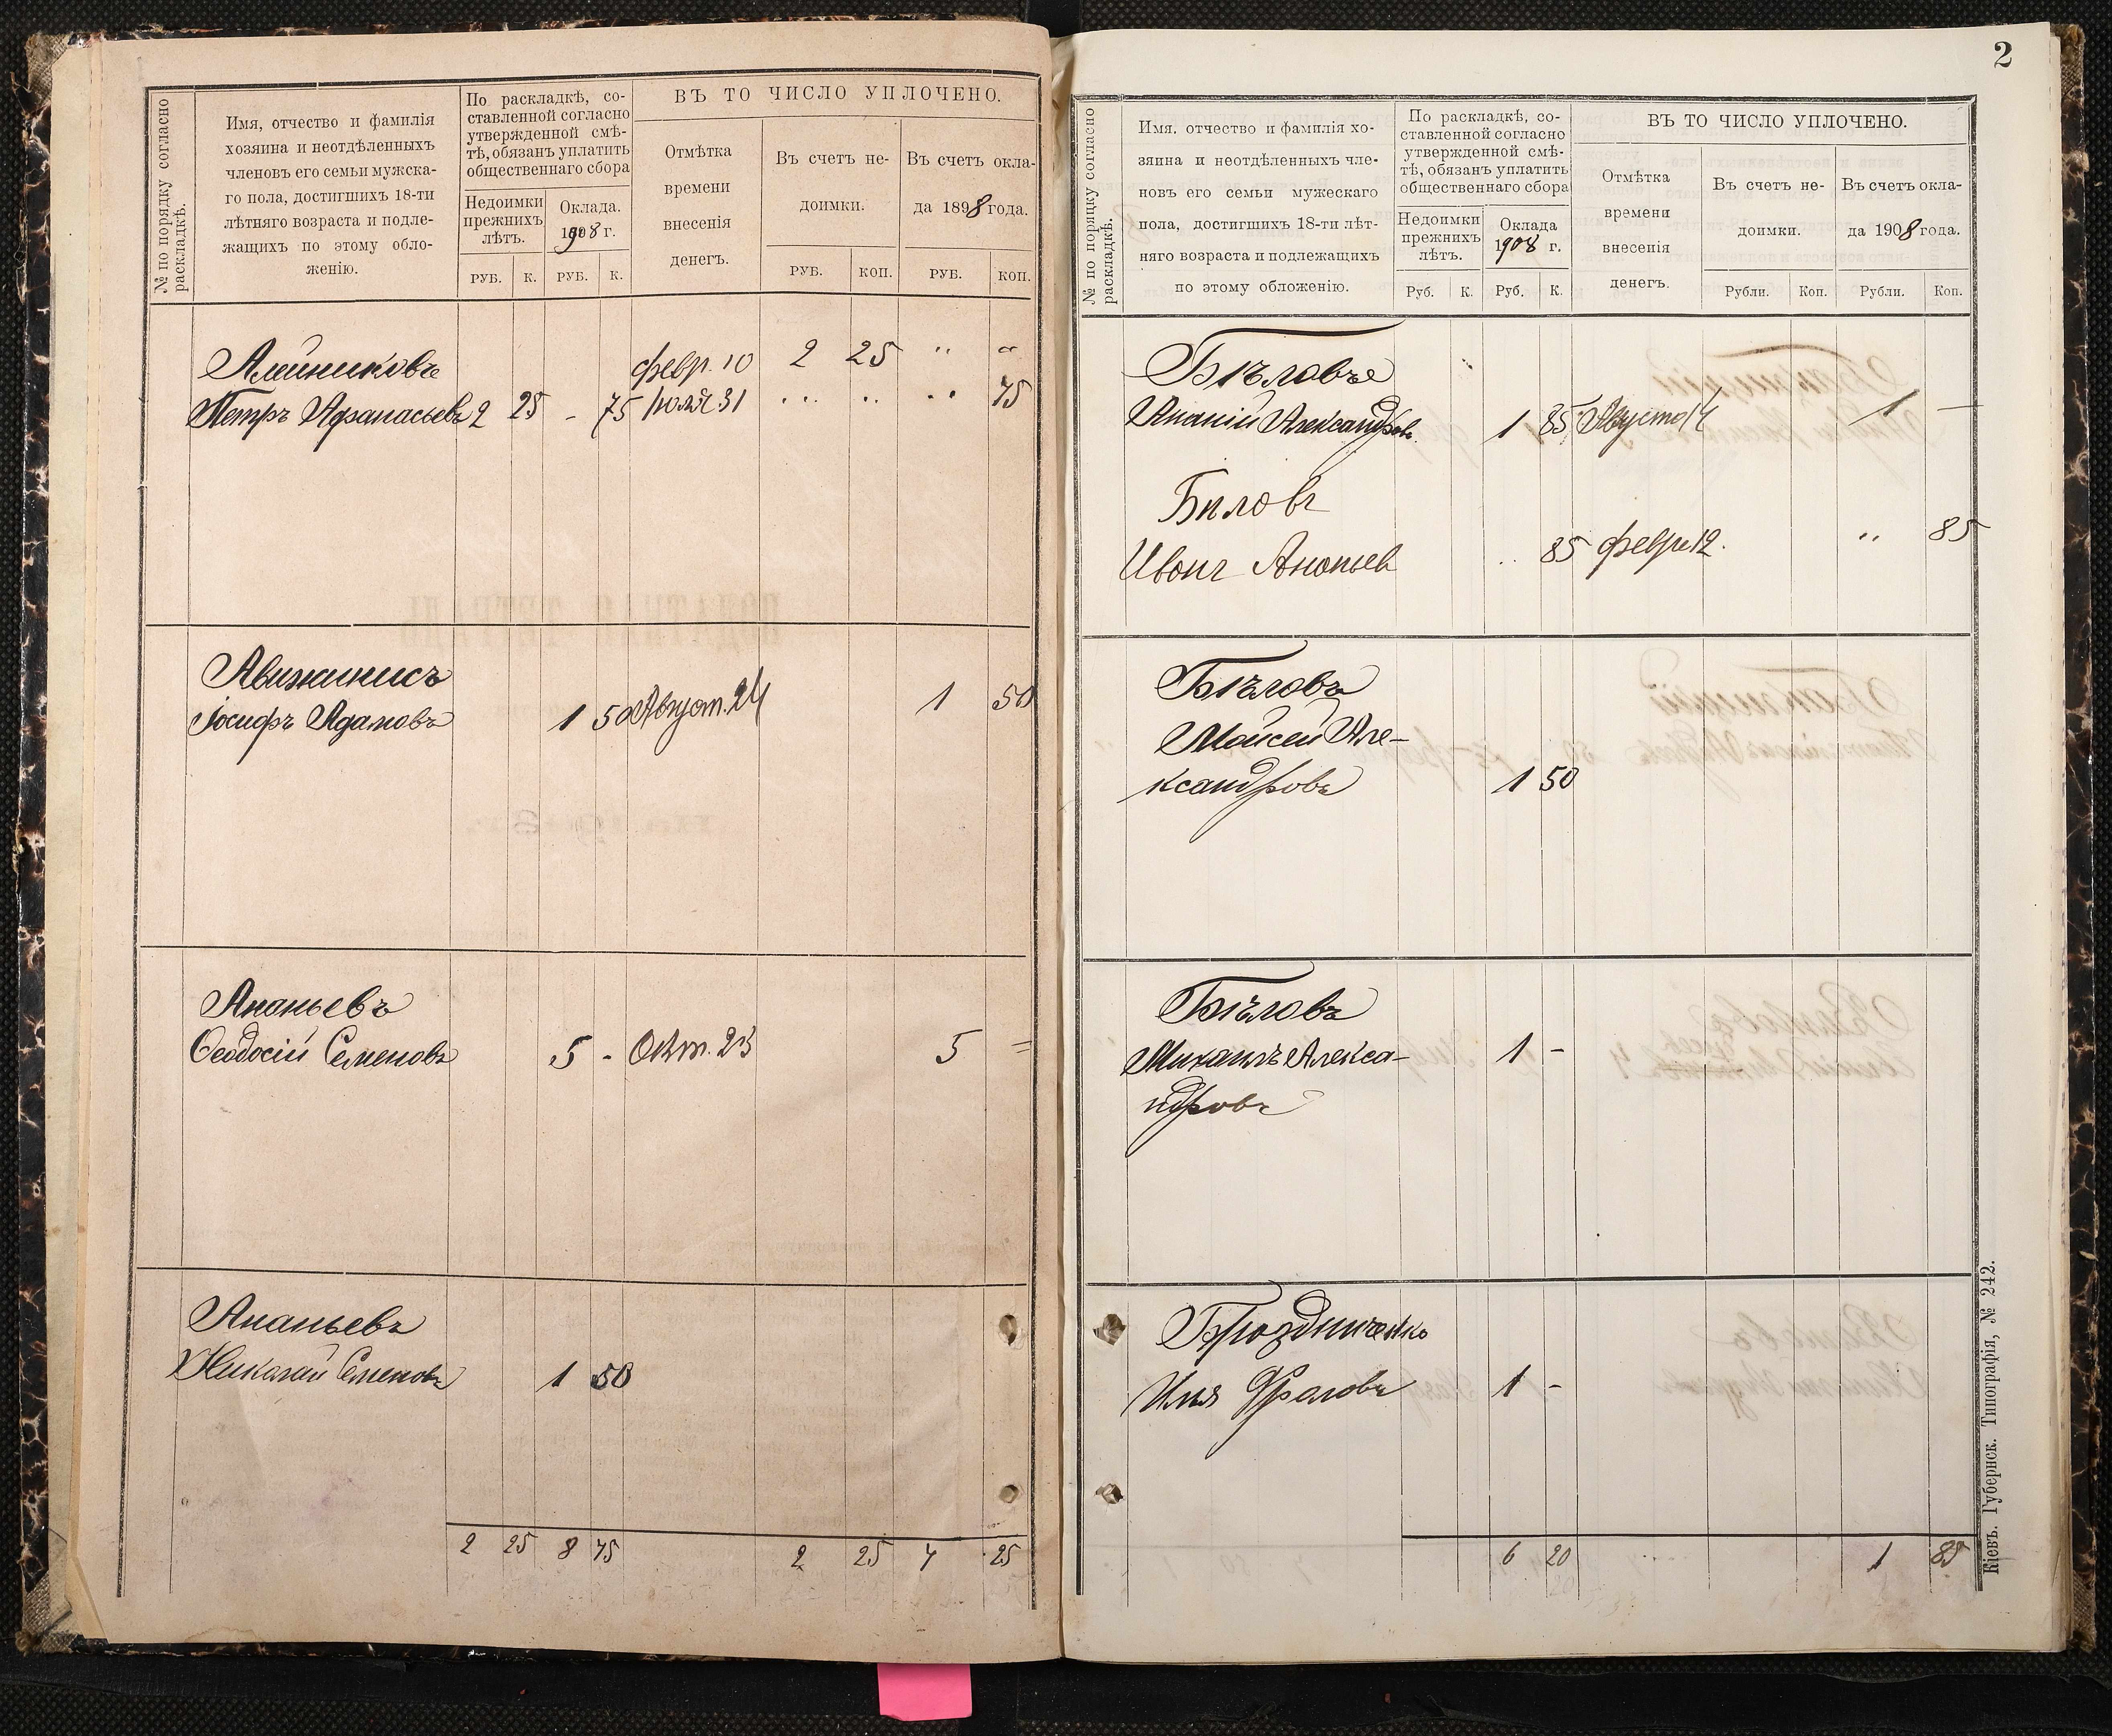 № по порядку согласно
раскладкѣ.
Имя, отчество и фамилія
хозяина и неотдѣленныхъ
членовъ его семьи мужска-
го пола, достигшихъ 18-ти
лѣтняго возраста и подле-
жащихъ по этому обло-
женію.
По раскладкѣ, со-
ставленной согласно
утвержденной смѣ-
тѣ, обязанъ уплатить
общественнаго сбора
Недоимки
прежнихъ
лѣтъ.
Оклада.
1908 г.
РУБ. К. РУБ. К.
ВЪ ТО ЧИСЛО УПЛОЧЕНО.
Отмѣтка
времени
внесенія
денегъ.
Въ счетъ не-
доимки.
Въ счетъ окла-
да 1898 года.
РУБ. КОП. РУБ. КОП.
Алейниковъ февр. 10 2 25 " "
Петръ Афанасьевъ 2 25 - 75 Юля 31 .. .. .. 75
Авижинисъ
Іосифъ Адамовъ 1 50 Август. 24 1 50
Ананьевъ
Ѳеодосій Семеновъ 5 - Окт. 23 5 =
Ананьевъ
Николай Семеновъ 1 50
2 25 8 75 2 25 7 25
2
№ по порядку согласно
раскладкѣ.
Имя, отчество и фамилія хо-
зяина и неотдѣленныхъ чле-
новъ его семьи мужескаго
пола, достигшихъ 18-ти лѣт-
няго возраста и подлежащихъ
по этому обложенію.
По раскладкѣ, со-
ставленной согласно
утвержденной смѣ-
тѣ, обязанъ уплатить
общественнаго сбора
Недоимки
прежнихъ
лѣтъ.
Оклада
1908 г.
Руб. К. Руб. К.
ВЪ ТО ЧИСЛО УПЛОЧЕНО.
Отмѣтка
времени
внесенія
денегъ.
Въ счетъ не-
доимки.
Въ счетъ окла-
да 1908 года.
Рубли. Коп. Рубли. Коп.
Бѣловъ
Ананій Александровъ 1 85 Августа 14 1 —
Бѣловъ
Иванъ Ананьев .. 85 февр 12. .. 85
Бѣловъ
Моисей Але-
ксандровъ 1 50
Бѣловъ
Михаилъ Алекса- 1 -
ндровъ
Броздниченко
Илья Фроловъ 1 -
6 20 1 85
Кіевъ. Губернск. Типографія, № 242.